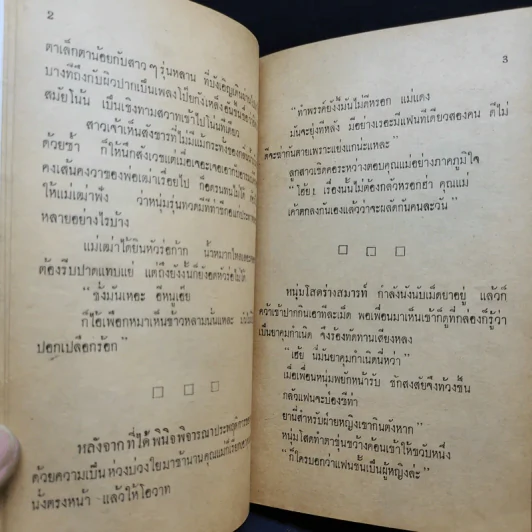 2
ตาเล็กตาน้อยกับสาวๆรุ่นหลาน ที่บังเอิญเดินผ่านไป
บางทีถึงกับผิวปากเป็นเพลงโป๊ยกังเหล็ง
สมัยโน้น เป็นเชิงทามสวาทเข้าไปโน่นทีเดียว
สาวเจ้าเห็นสังขารที่ไม่มีแม้กระทั่งรองเท้า
ด้วยซ้ำ ก็ให้นึกสังเวชแต่เมื่อเจอะเจอเอา
คงเส้นคงวาของพ่อเฒ่าเรื่อยไป ก็อดรนทนไม่ได้
ให้แม่เฒ่าฟัง ว่าหนุ่มรุ่นทวดมีทีท่าชีกอแก่
หลายอย่างไรบ้าง
แม่เฒ่าได้ยินหัวร่อก้าก น้ำหมากไหล
ต้องรีบปาดแทบแย่ แต่ถึงยังงั้นก็ยังอดหัวร่อไม่ได้
"ช่างมันเหอะ อีหนูเอ๊ย
ก็ไอ้เฒ่าหมาเห็นข้าวหลามนั่นแหละ
ปอกเปลือกร้อก"
□ □ □
หลังจากที่ได้พินิจพิจารณาประพฤติการ
ด้วยความเป็นห่วงบ่วงใยมาช้านานคุณแม่ก็เรียก
นั่งตรงหน้า แล้วให้โอวาท
3
"ทำพรรค์ยังงี้มันไม่ดีหรอก แม่แดง
มันจะยุ่งทีหลัง มีอย่างเรอะมีแฟนทีเดียวสองคน ดีไม่
ดีจะฆ่ากันตายเพราะแย่งแกน่ะแหละ"
ลูกสาวเชิดคอระหว่างตอบคุณแม่อย่างภาคภูมิใจ
"โอ๊ย! เรื่องนั้นไม่ต้องกลัวหรอกฮ่า คุณแม่
เค้าตกลงกันเองแล้วว่าจะผลัดกันคนละวัน"
□ □ □
หนุ่มโสดร่างสมาร์ท กำลังนั่งนับเม็ดยาอยู่ แล้วก็
คว้าเข้าปากกินเอาทีละเม็ด พอเพื่อนมาเห็นเข้าก็ดูที่กล่องก็รู้ว่า
เป็นยาคุมกำเนิด จึงร้องทักทานเสียงหลง
"เฮ้ย นี่มันยาคุมกำเนิดนี่หว่า"
เมื่อเพื่อนหนุ่มพยักหน้ารับ ชักสงสัยจึงท้วงขึ้น
กลัวแฟนจะป่องซีท่า
ยานี่สำหรับฝ่ายหญิงเขากินต่างหาก"
หนุ่มโสดทำตาขุ่นขวางค้อนเข้าให้ขวับหนึ่ง
"ก็ใครบอกว่าแฟนชั้นเป็นผู้หญิงล่ะ"